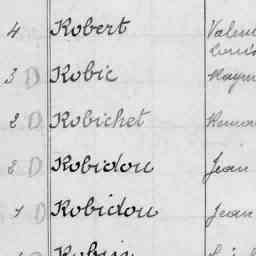 4 Robert Valen
Louis
3 D Robic Raym
2 D Robichet Renou
2 D Robidou Jean
1 D Robidou Jean
Robin